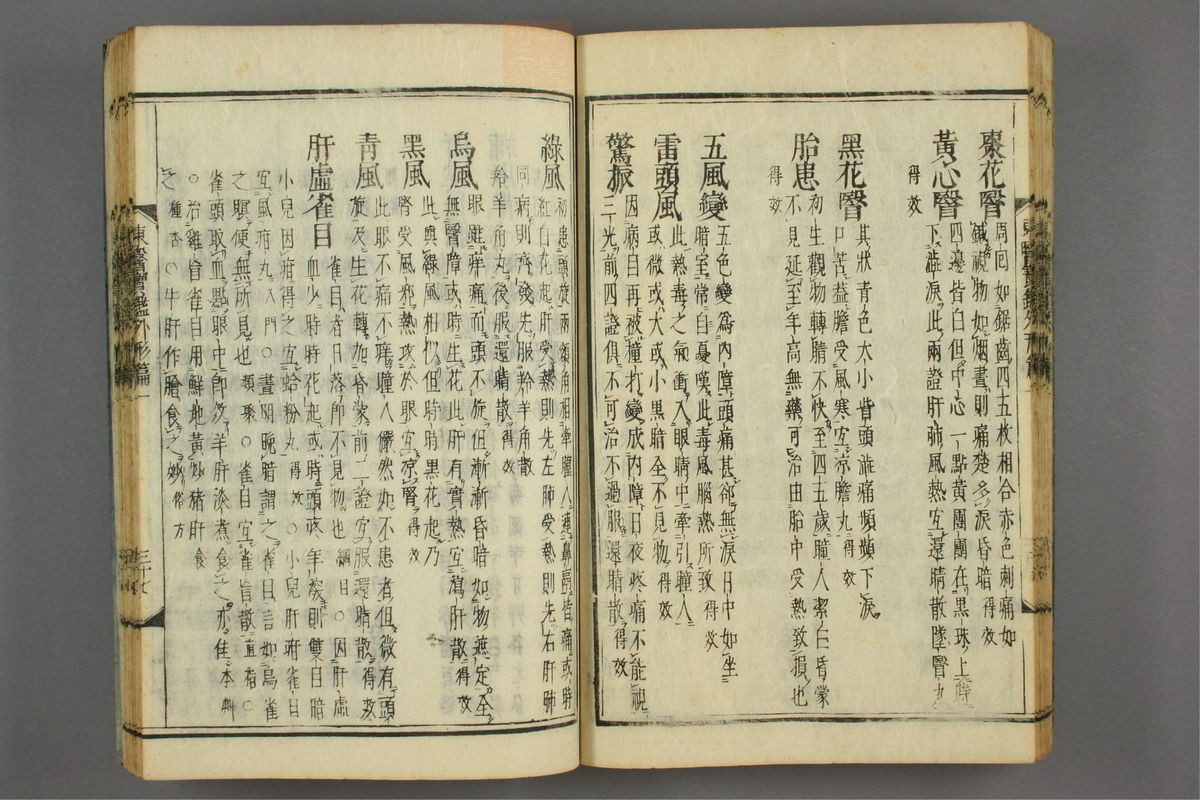 棗花瞖
周囘如鋸齒四五枚相合赤色刺痛如
鍼視物如烟晝則痛楚多淚昏暗得效
黃心瞖
四邊皆白但中心一點黃團團在黑珠上時
下澁淚此兩證肝肺風熱宜還睛散墜瞖丸
得效
黑花瞖
其狀青色大小眥頭澁痛頻頻下淚
口苦盖膽受風寒宜凉膽丸得效
胎患
初生觀物轉睛不快至四五歲瞳人潔白昏蒙
不見延至年高無藥可治由胎中受熱致損也
得效
五風變
五色變爲內障頭痛甚却無淚日中如坐
暗室常自憂嘆此毒風腦熱所致得效
雷頭風
此熱毒之氣衝入眼睛中牽引瞳人
或微或大或小黑暗全不見物得效
驚振
因病目再被撞打變成內障日夜疼痛不能視
三光前四證俱不可治不過服還睛散得效
綠風
初患頭旋兩額角相牽瞳人連鼻鬲皆痛或時
紅白花起肝受熱則先左肺受熱則先右肝肺
同病則齊發先服羚羊角散
後服還睛散得效
烏風
眼雖痒痛而頭不旋但漸漸昏暗如物遮定全
無瞖障或時生花此肝有實熱宜瀉肝散得效
黑風
此與綠風相似但時時黑花起乃
腎受風邪熱攻於眼宜凉腎得效
青風
此眼不痛不痒瞳人儼然如不患者但微有頭
旋及生花轉加昏蒙前二證宜服還睛散得效
肝虛雀目
雀目者日落卽不見物也綱目○因肝虛
血少時時花起或時頭疼年深則雙目暗
小兒因疳得之宜蛤粉丸得效○小兒肝疳雀目
宜風疳丸入門○晝明晩暗謂之雀目言如鳥雀
之瞑便無所見也類聚○雀目宜雀盲散直指○
雀頭取血點眼中卽差羊肝淡煮食之亦佳本草
○治雞盲雀目用鮮地黃炒猪肝食
之種杏○牛肝作膾食之妙俗方
東醫寶鑑外形篇一
三十七